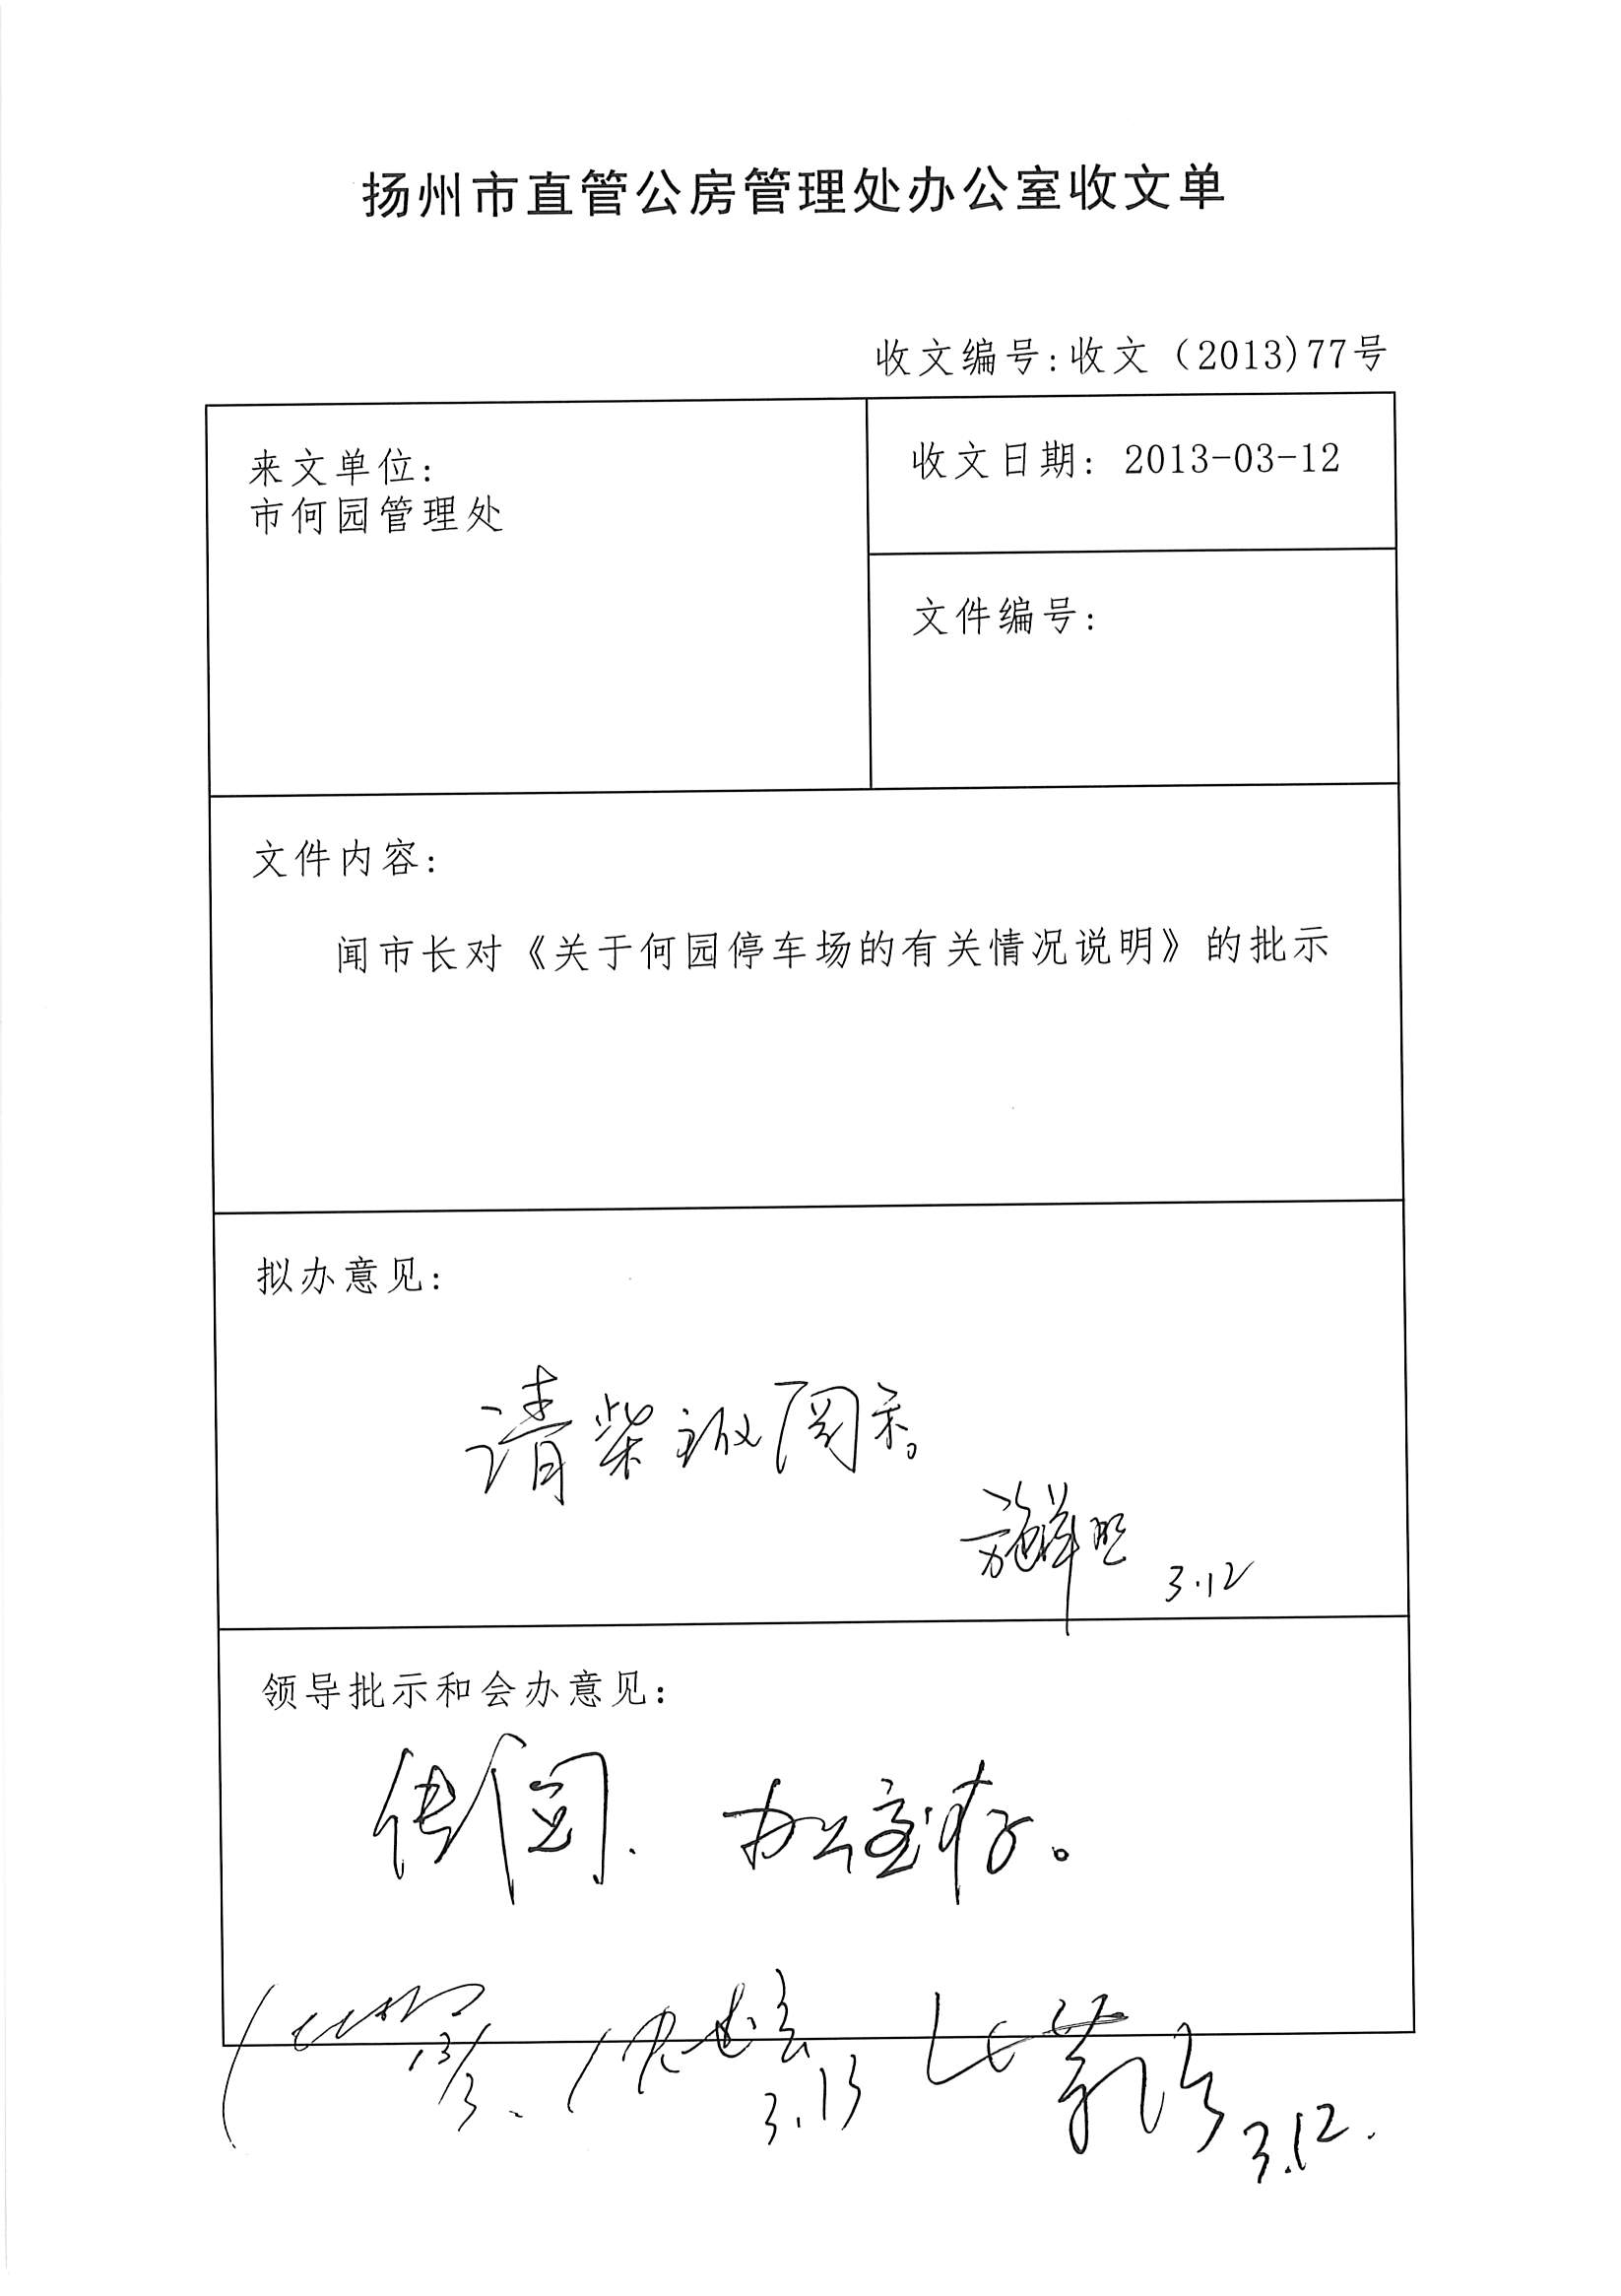 扬州市直管公房管理处办公室收文单
收文编号:收文（2013)77号
来文单位:
市何园管理处
收文日期: 2013-03-12
文件编号:
文件内容:
闻市长对《关于何园停车场的有关情况说明》的批示
拟办意见:
请柴主任阅示。
3.12
领导批示和会办意见:
传阅. 办公室存。
13/3.
3.13
3.12.